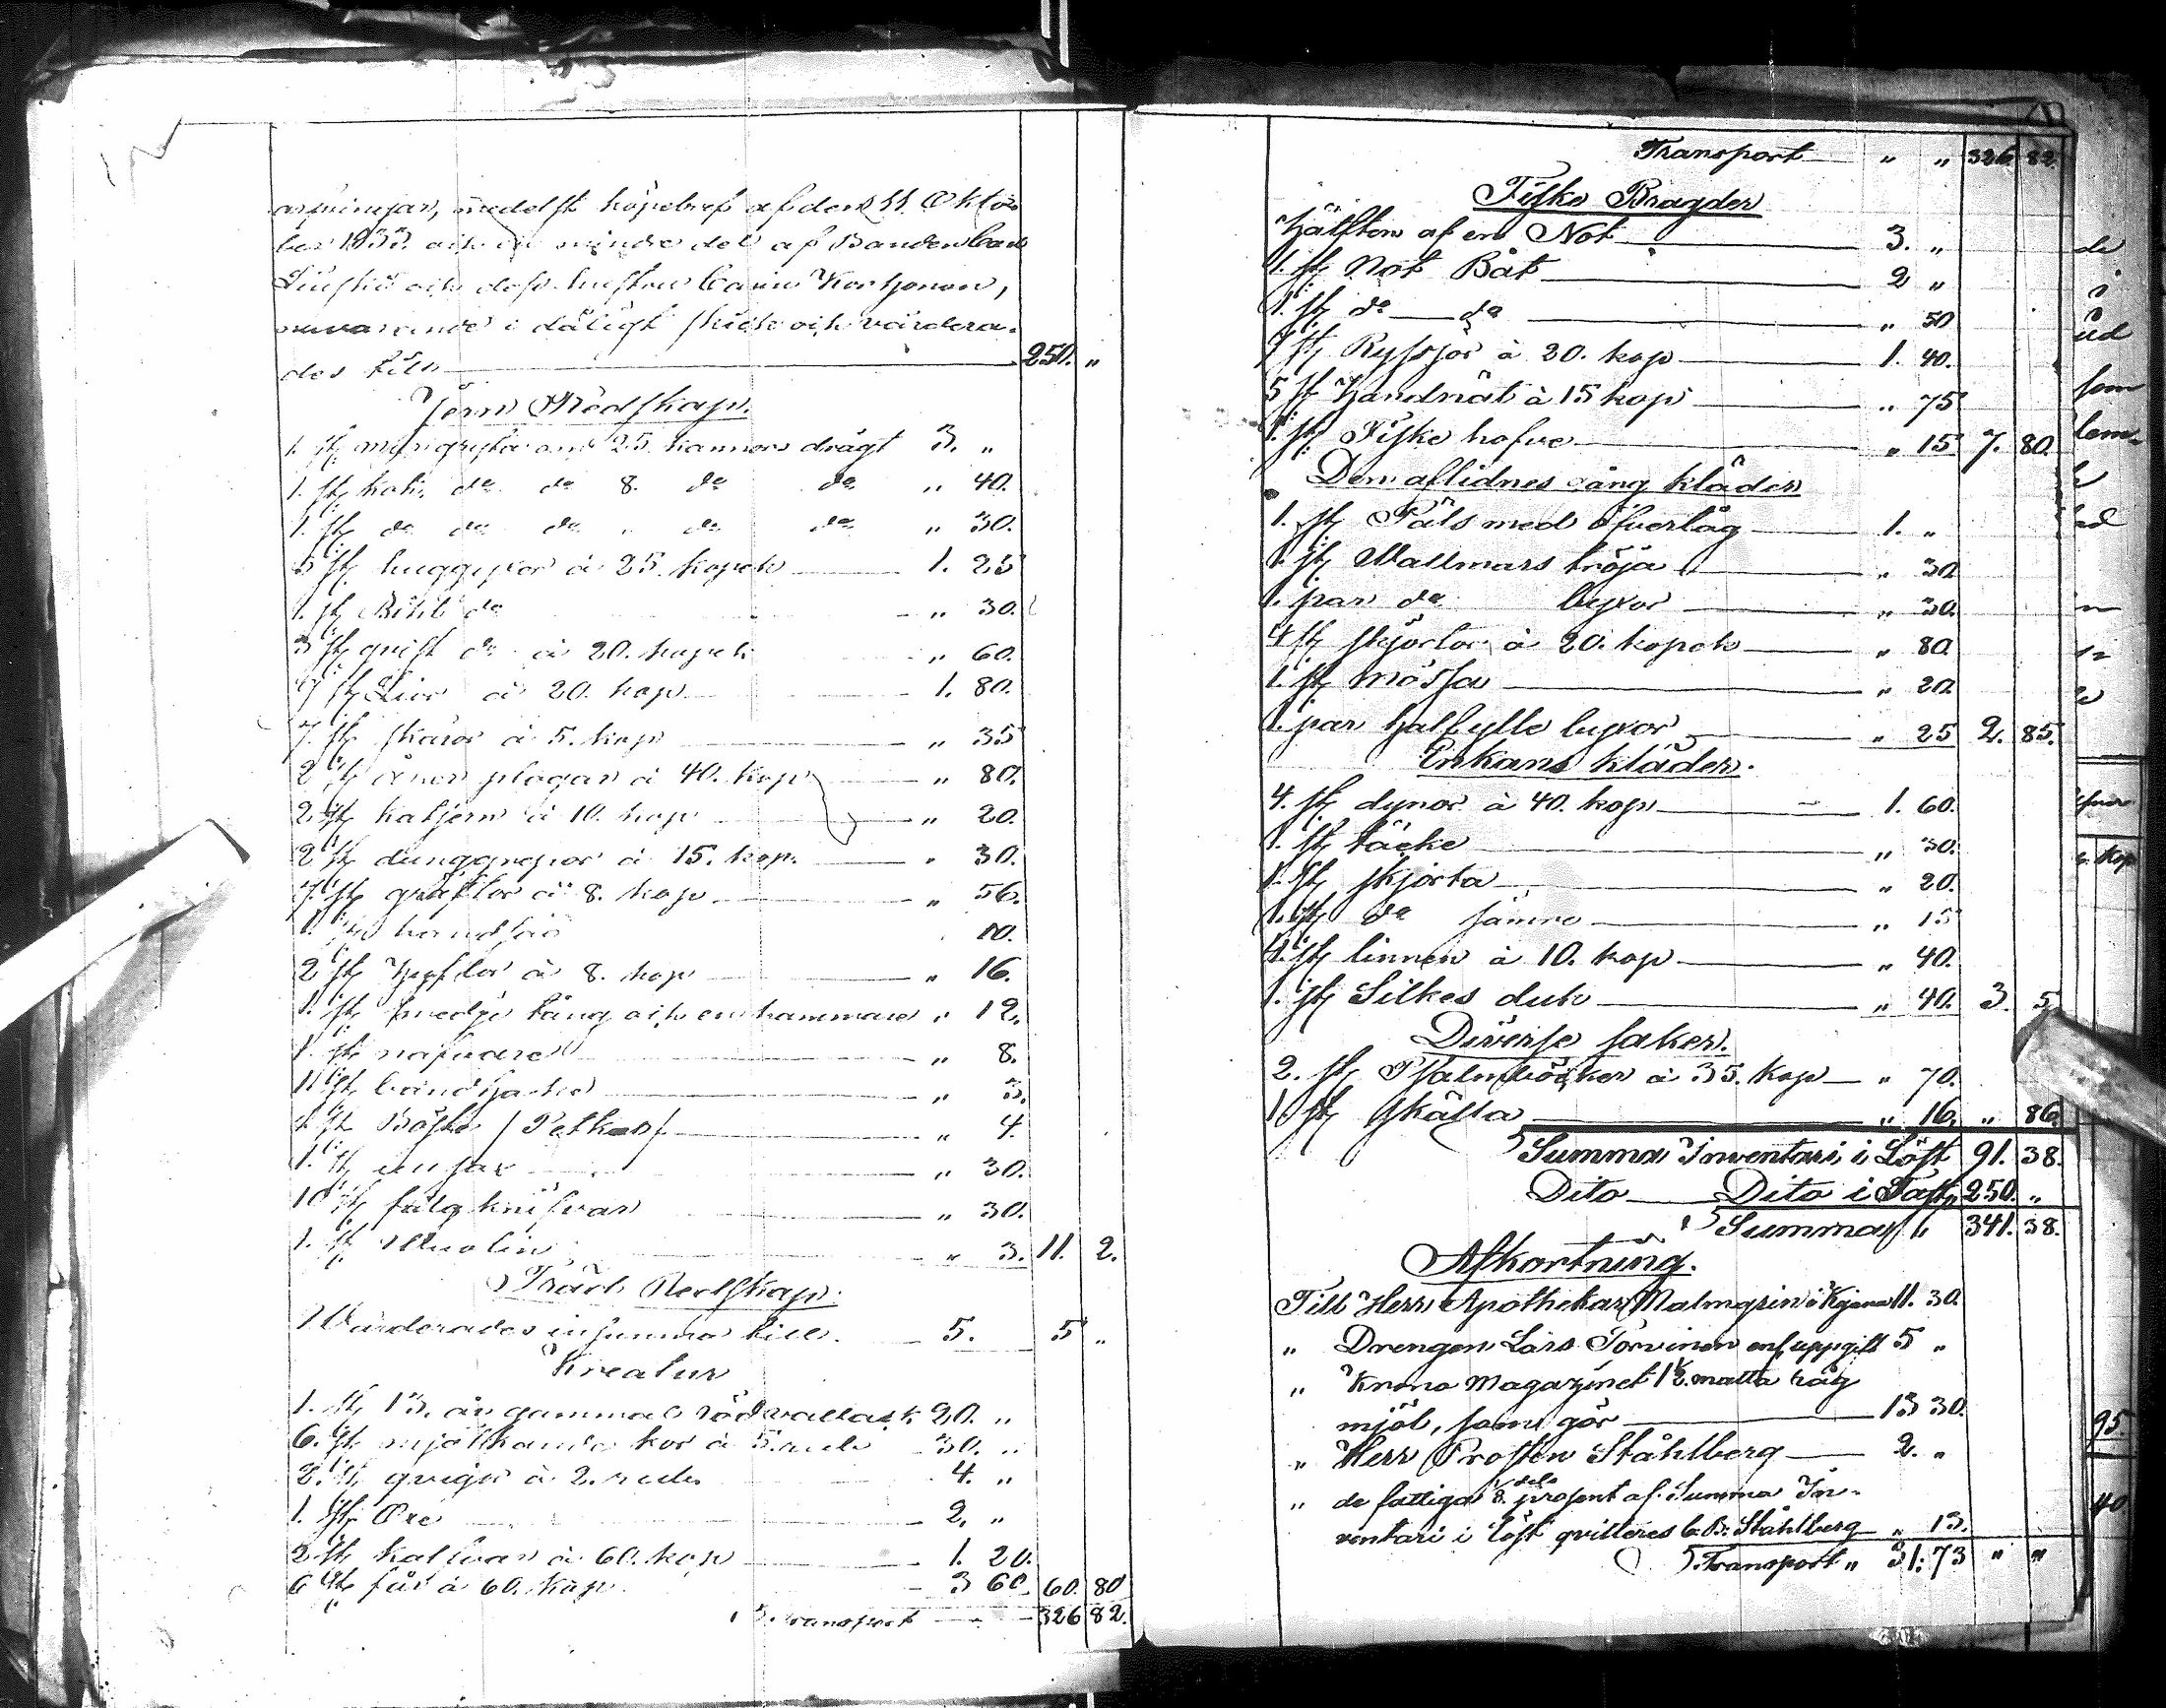 medelst köpebref af den 11 Okto-
ber 1833. och en mindre del af Bonden
och dess hustru Carin Korhonen,
nuvarande i dåligt skick och värdera-
des till 250. "
Jern Redskap.
1. st 25. kannors drägt 3. "
1. st kok do do 8. do do " 40.
1. st do do do " do do " 30.
5 st huggyxor à 25. kopek 1. 25
1. st Bihl do " 30.
3 st qvist do à 20. kopek " 60.
9 st Liar à 20. kop 1. 80.
7. st skäror à 5. kop " 35
2 st plogar à 40. kop " 80.
2 st à 10. kop " 20.
2 st dynggrepor à 15. kop. " 30.
7. st gräftor à 8. kop " 56.
1. st 10.
2 st à 8. kop " 16.
1. st smedje tång och en hammare " 12.
1. st nafvare " 8.
1 st bandhake " 3.
1 st / Petkel / " 4.
1. st " 30.
10 st knifvar " 30.
1. st " 3. 11. 2.
Träd Redskap.
Värderades in summa till 5. 5 "
Kreatur
1. st 13. år gammal röd vallack 20. "
6. st mjölkande kor à 5. rub 30. "
2. st qvigor à 2. rub. 4. "
1. st Oxe 2. "
2 st kalfvar à 60. kop 1. 20.
6 st får à 60. kop. 3 60 60. 80
Transport 326 82.
Transport " " 326. 82.
Fiske Bragder
Hälften af en Not 3. "
1. st Not Båt 2 "
1. st do do " 50
7 st Ryssjor à 20. kop 1. 40.
5 st Handnät à 15 kop " 75
1. st Fiske hofve " 15 7. 80.
Den aflidnes gång kläder
1. st Päls med öfvertåg 1. "
1. st Vallmars tröja " 30
1. par do byxor " 30.
4 st skjortor à 20. kopek " 80.
1. st mössa " 20.
1. par halfylle byxor " 25 2. 85.
Enkans kläder.
4. st dynor à 40. kop 1. 60.
1. st täcke " 30.
1. st skjorta " 20.
1. st do sämre " 15
4. st linnen à 10. kop " 40.
1. st Silkes duk " 40. 3. 5.
Diverse saker.
2. st Psalmböcker à 35. kop " 70.
1. st skälla " 16. " 86.
Summa Inventari i Löst 91. 38.
Dito Dito i Fast 250. "
Summa 341. 38.
Afkortning.
Till Herr Apothekar Malmgrin i Kajana 11. 30.
" Drengen Lars Torvinen enl uppgift 5 "
" Krono Magazinet 1 1/2. matta råg
mjöl, som gör 13 30.
" Herr Prosten Ståhlberg 2. "
" de fattiga 1/8 dels prosent af Summa In-
ventari i Löst qvitteres C. B. Ståhlberg " 13.
Transport " 31. 73 " "